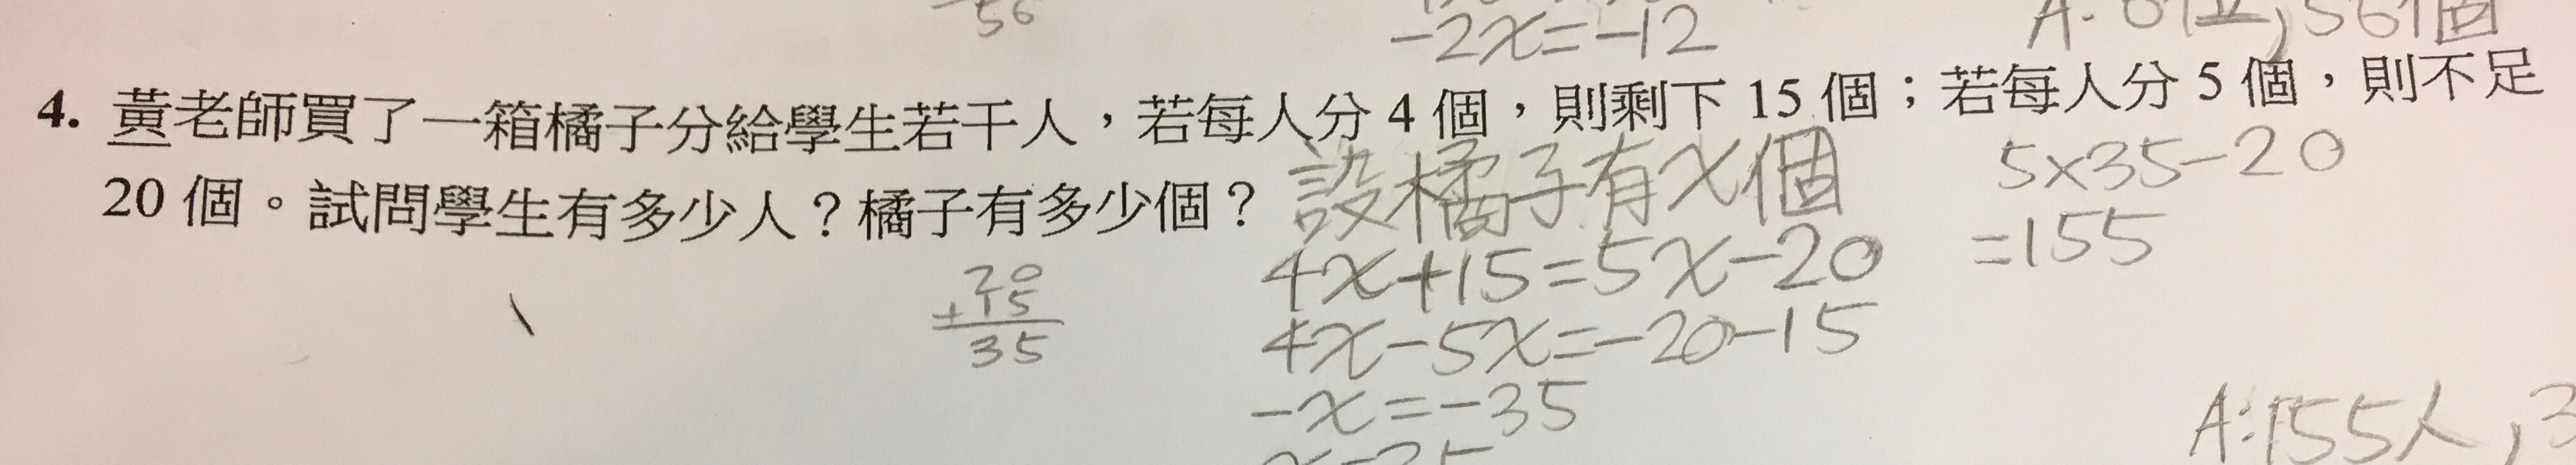 56
-2x=-12
4. 黃老師買了一箱橘子分給學生若干人，若每人分 4 個，則剩下 15 個；若每人分 5 個，則不足
20 個。試問學生有多少人？橘子有多少個？
設橘子有x個
4x+15=5x-20
4x-5x=-20-15
-x=-35
20
+15
35
5x35-20
=155
A:155人,3